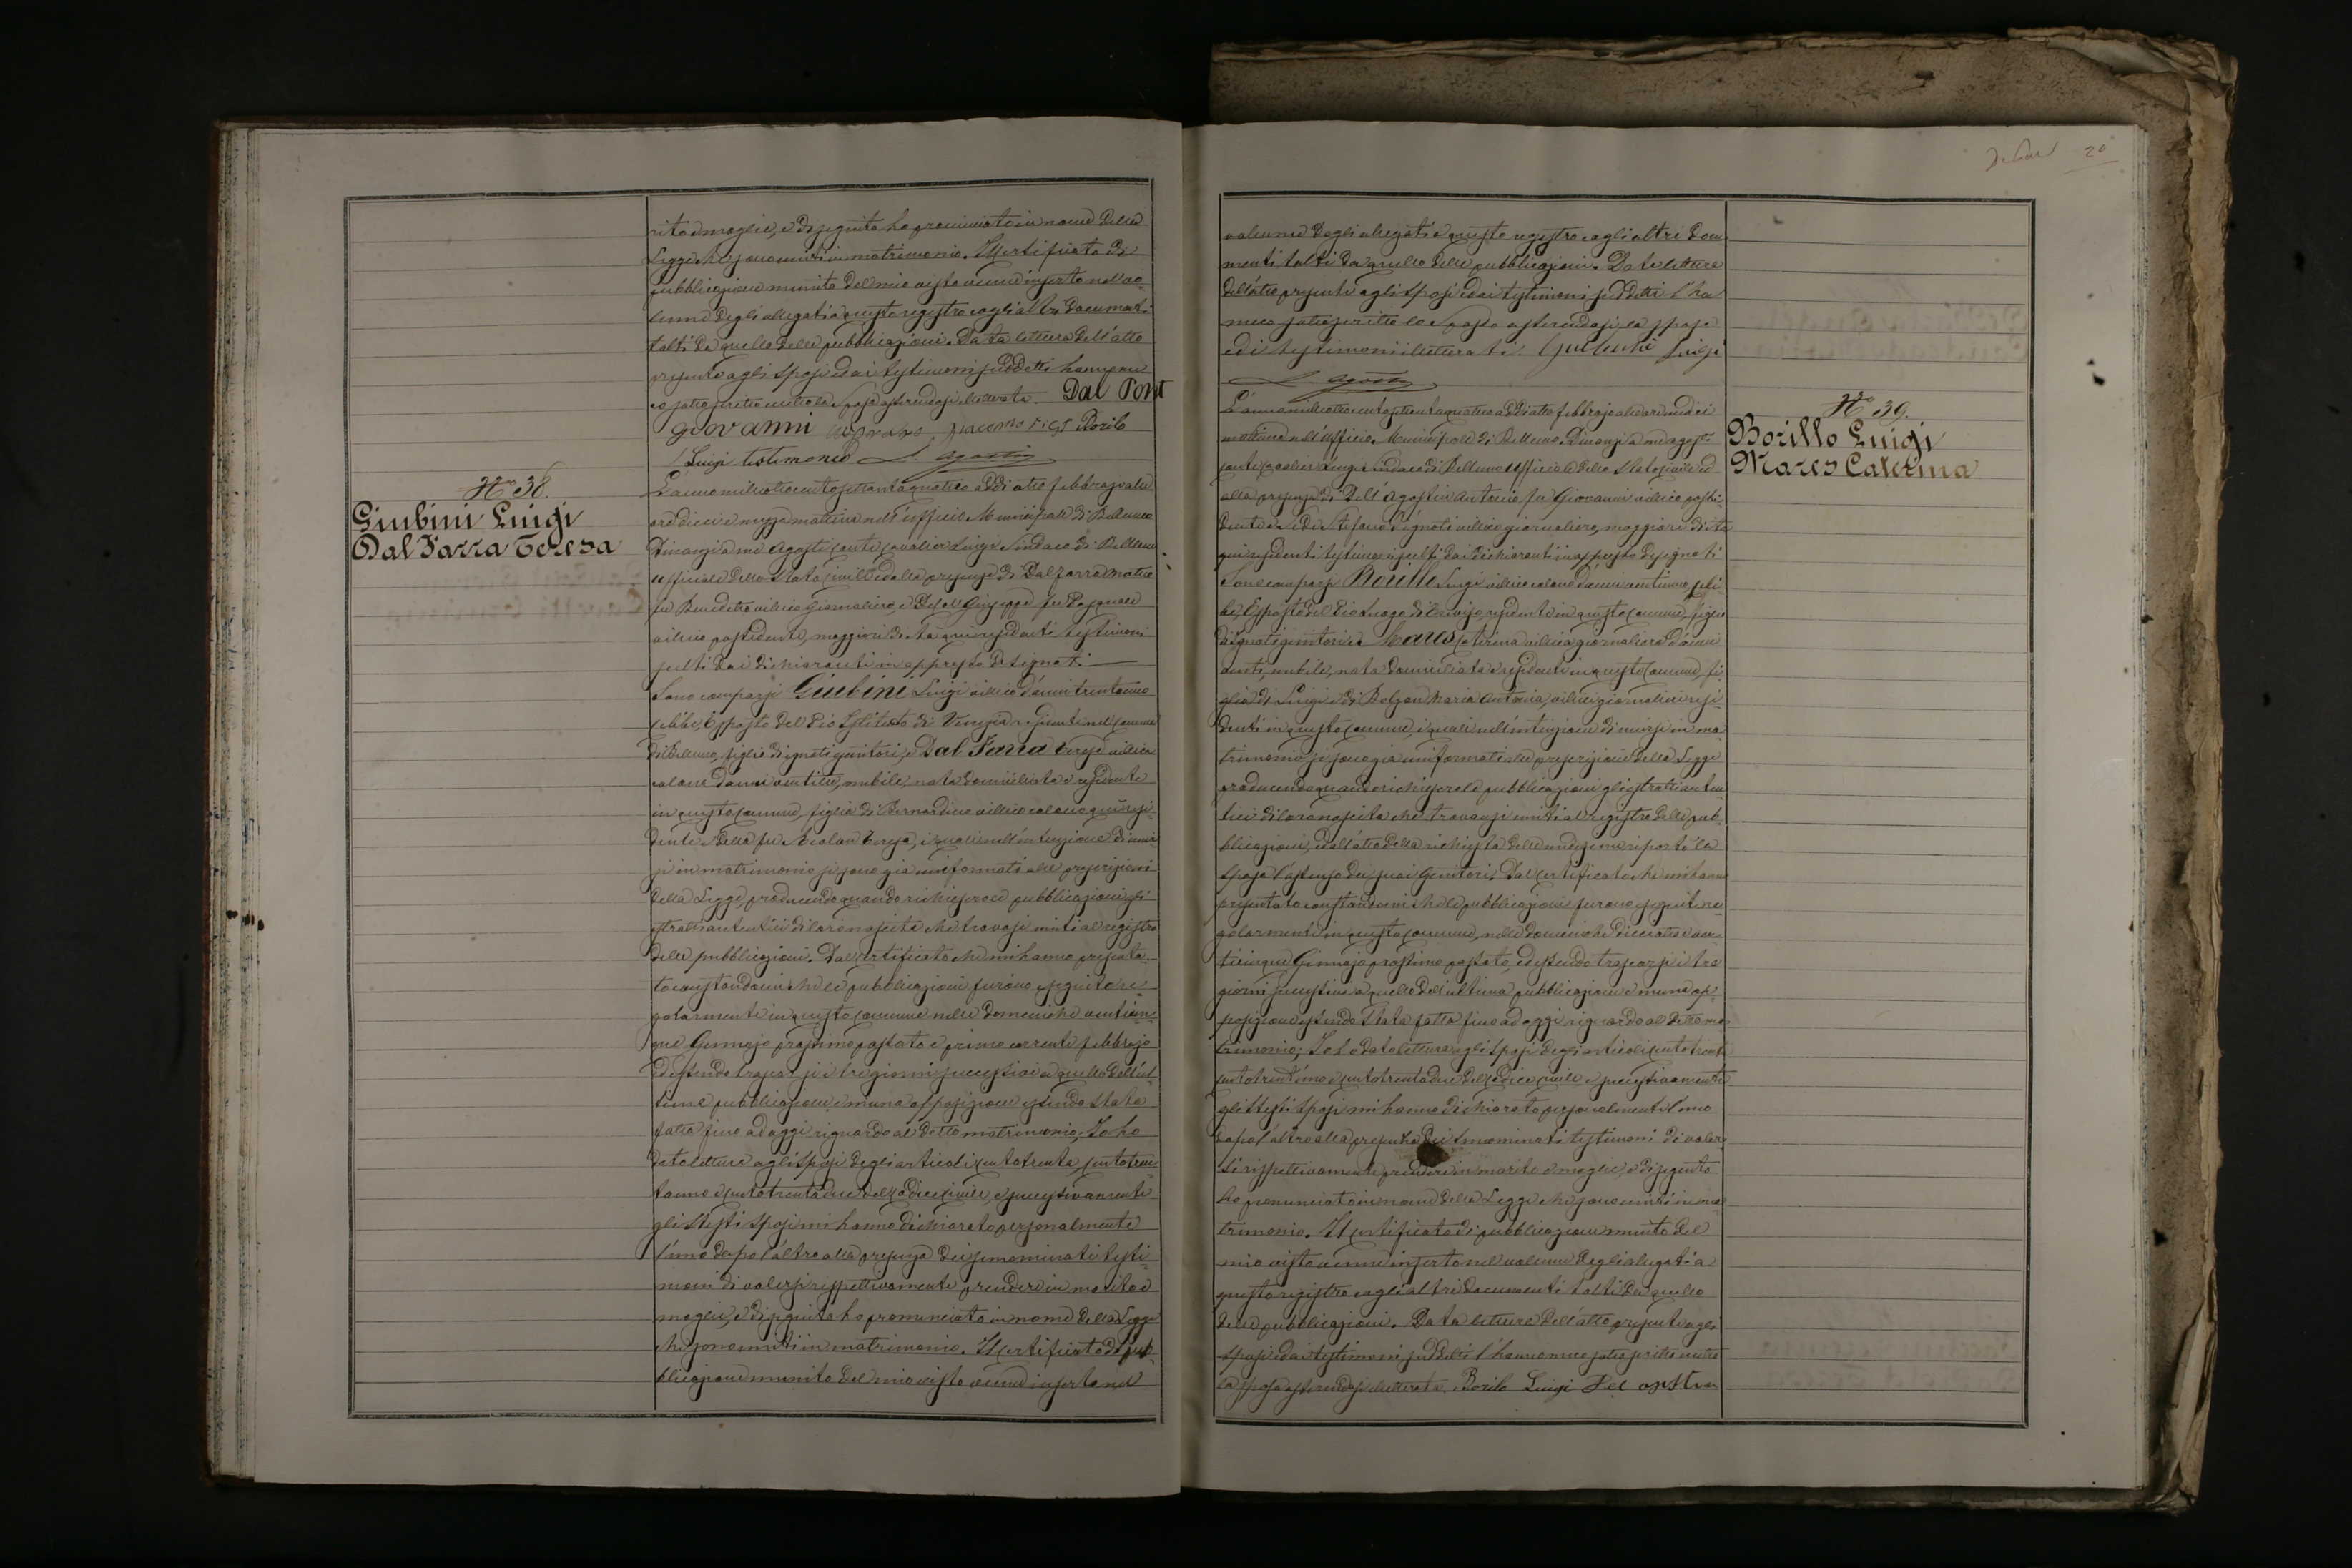 rito e moglie, e di seguito ho pronunciato in nome della
Legge che sono uniti in matrimonio. Il certificato di
pubblicazione munito del mio visto venne inserto nel vo-
lume degli allegati a questo registro cogli altri documenti
tolti da quello delle pubblicazioni. Data lettura dell'atto
presente agli sposi ed ai testimoni suddetti hanno me-
co sottoscritto meno la sposa essendosi illetterata Dal Pont
Giovanni Giacomo Borilo
Luigi testimonio L. Agosti
N° 38.
Giubini Luigi
Dal Farra Teresa
L'anno milleottocentosettantaquattro addì otto febbrajo alle
ore dieci e mezza mattina nell'ufficio Municipale di Belluno
Dinanzi a me Agosti conte cavalier Luigi Sindaco di Belluno
ufficiale dello Stato Civile ed alla presenza di Dal Farra Matteo
fu Benedetto villico giornaliero e Giuseppe fu Pasquale
villico possidente, maggiori di età qui residenti testimoni
scelti dai dichiaranti in appresso designati
Sono comparsi Giubini Luigi villico d'anni trentauno
celibe, Esposto del Pio Istituto di Venezia residente nel comune
di Belluno, figlio d'ignoti genitori, e Dal Farra Teresa villica
colona d'anni ventitre, nubile, nata domiciliata e residente
in questo comune, figlia di Bernardino villico colono qui resi-
dente e della fu Teresa, i quali nell'intenzione di unir-
si in matrimonio si sono già uniformati alle prescrizioni
della Legge, producendo quando richiesero le pubblicazioni gli
estratti autentici di loro nascita che trovansi uniti al registro
delle pubblicazioni. Dal certificato che mi hanno presenta-
to constandomi che le pubblicazioni furono eseguite re-
golarmente in questo comune nelle domeniche venticin-
que Gennajo prossimo passato e primo corrente febbrajo
ed essendo trascorsi i tre giorni successivi a quello dell'ul-
tima pubblicazione, e niuna opposizione essendo stata
fatta fino ad oggi riguardo al detto matrimonio; Io ho
dato lettura agli sposi degli articoli centotrenta, centotren-
tauno e centotrentadue del codice civile, e successivamente
gli stessi sposi mi hanno dichiarato personalmente
l'uno dopo l'altro alla presenza dei summenominati testi-
moni di volersi rispettivamente prendere in marito e
moglie, e di seguito ho pronunciato in nome della Legge
che sono uniti in matrimonio. Il certificato di pub-
blicazione munito del mio visto venne inserto nel
20
volume degli allegati a questo registro cogli altri docu-
menti tolti da quello delle pubblicazioni. Data lettura
dell'atto presente agli sposi ed ai testimoni suddetti l'ha
meco sottoscritto lo sposo essendosi la sposa
ed i testimoni illetterati. Luigi
L. Agosti
N° 39.
Borillo Luigi
Mares Caterina
L'anno milleottocentosettantaquattro addì otto febbrajo alle ore undici
mattina nell'ufficio Municipale di Belluno. Dinanzi a me Agosti
conte cavalier Luigi Sindaco di Belluno ufficiale dello Stato civile ed
alla presenza di Dell'Agostin Antonio fu Giovanni villico possi-
dente e Stefano d'ignoti villico giornaliero, maggiori di età
qui residenti testimoni scelti dai dichiaranti in appresso designati
Sono comparsi Borillo Luigi villico colono d'anni ventiuno celi-
be, Esposto del Pio Luogo di Treviso, residente in questo comune, figlio
d'ignoti genitori, e Mares Caterina villica giornaliera d'anni
venti, nubile, nata domiciliata e residente in questo comune, fi-
glia di Luigi e di Bolzan Maria Antonia, villici giornalieri resi-
denti in questo comune, i quali nell'intenzione di unirsi in ma-
trimonio si sono già uniformati alle prescrizioni della Legge
producendo quando richiesero le pubblicazioni gli estratti auten-
tici di loro nascita che trovansi uniti al registro delle pub-
blicazioni, e dall'atto della richiesta delle medesime riportò la
sposa l'assenso dei suoi genitori; Dal certificato che mi hanno
presentato constandomi che le pubblicazioni furono eseguite re-
golarmente in questo comune, nelle domeniche dieciotto e ven-
ticinque Gennajo prossimo passato, ed essendo trascorsi i tre
giorni successivi a quello dell'ultima pubblicazione e niuna op-
posizione essendo stata fatta fino ad oggi riguardo al detto ma-
trimonio; Io ho dato lettura agli sposi degli articoli centotrenta
centotrentuno e centotrentadue del codice civile e successivamente
gli stessi sposi mi hanno dichiarato personalmente l'uno
dopo l'altro alla presenza dei summenominati testimoni di voler-
si rispettivamente prendere in marito e moglie, e di seguito
ho pronunciato in nome della Legge che sono uniti in ma-
trimonio. Il certificato di pubblicazione munito del
mio visto venne inserto nel volume degli allegati a
questo registro cogli altri documenti tolti da quello
delle pubblicazioni. Data lettura dell'atto presente agli
sposi ed ai testimoni suddetti l'hanno meco sottoscritto meno
la sposa essendosi illetterata. Borilo Luigi